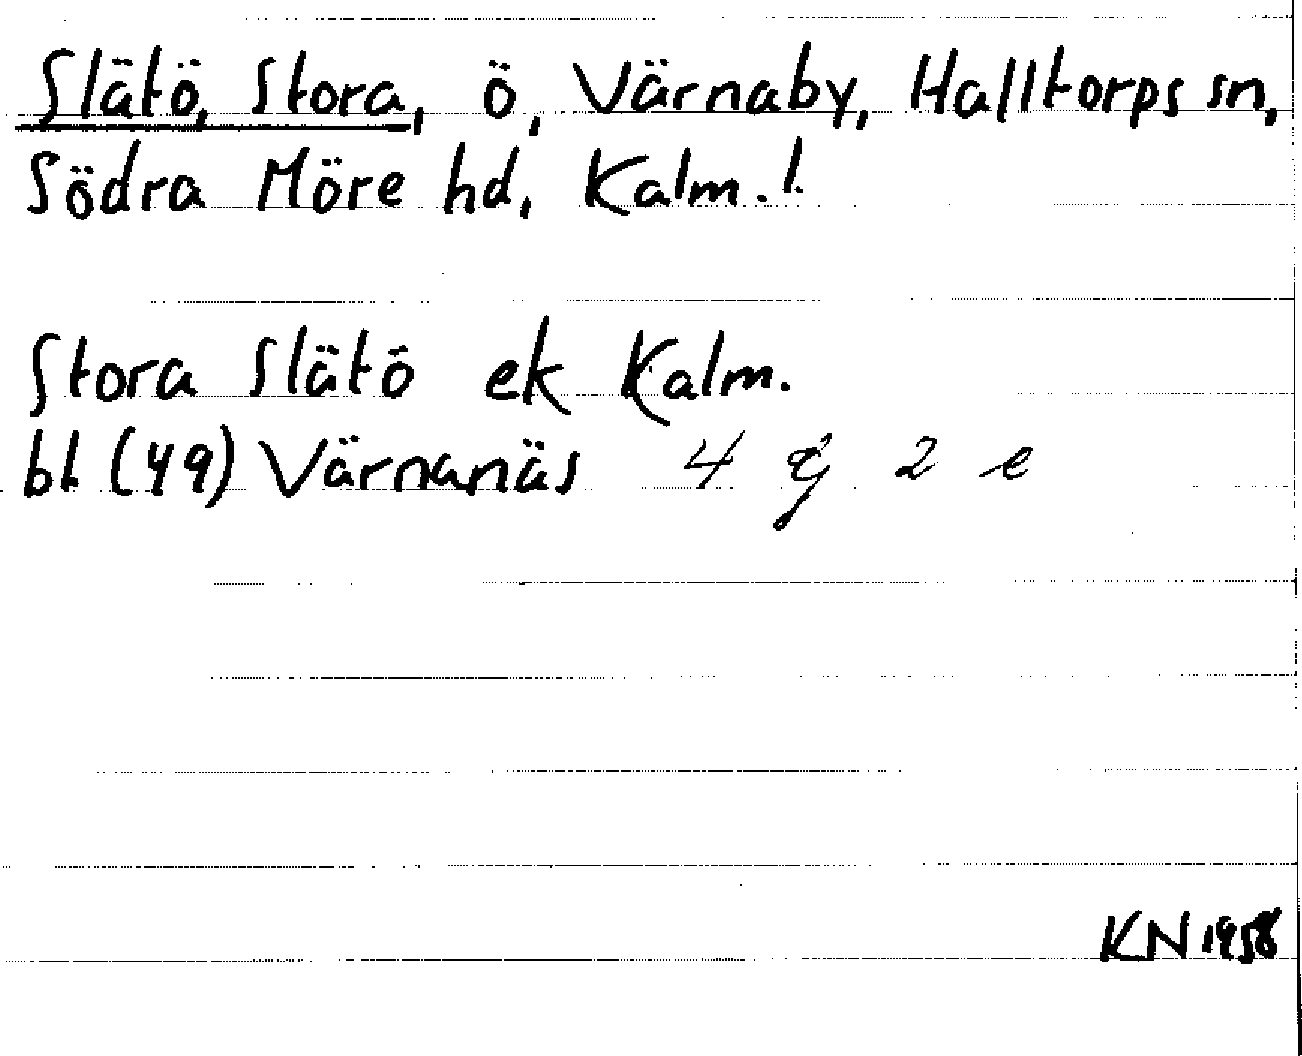 Slätö, Stora, ö, Värnaby, Halltorps sn,
Södra Möre hd, Kalm. l.
Stora Slätö ek Kalm.
bl (49) Värnanäs 4 g 2 e
KN 1958